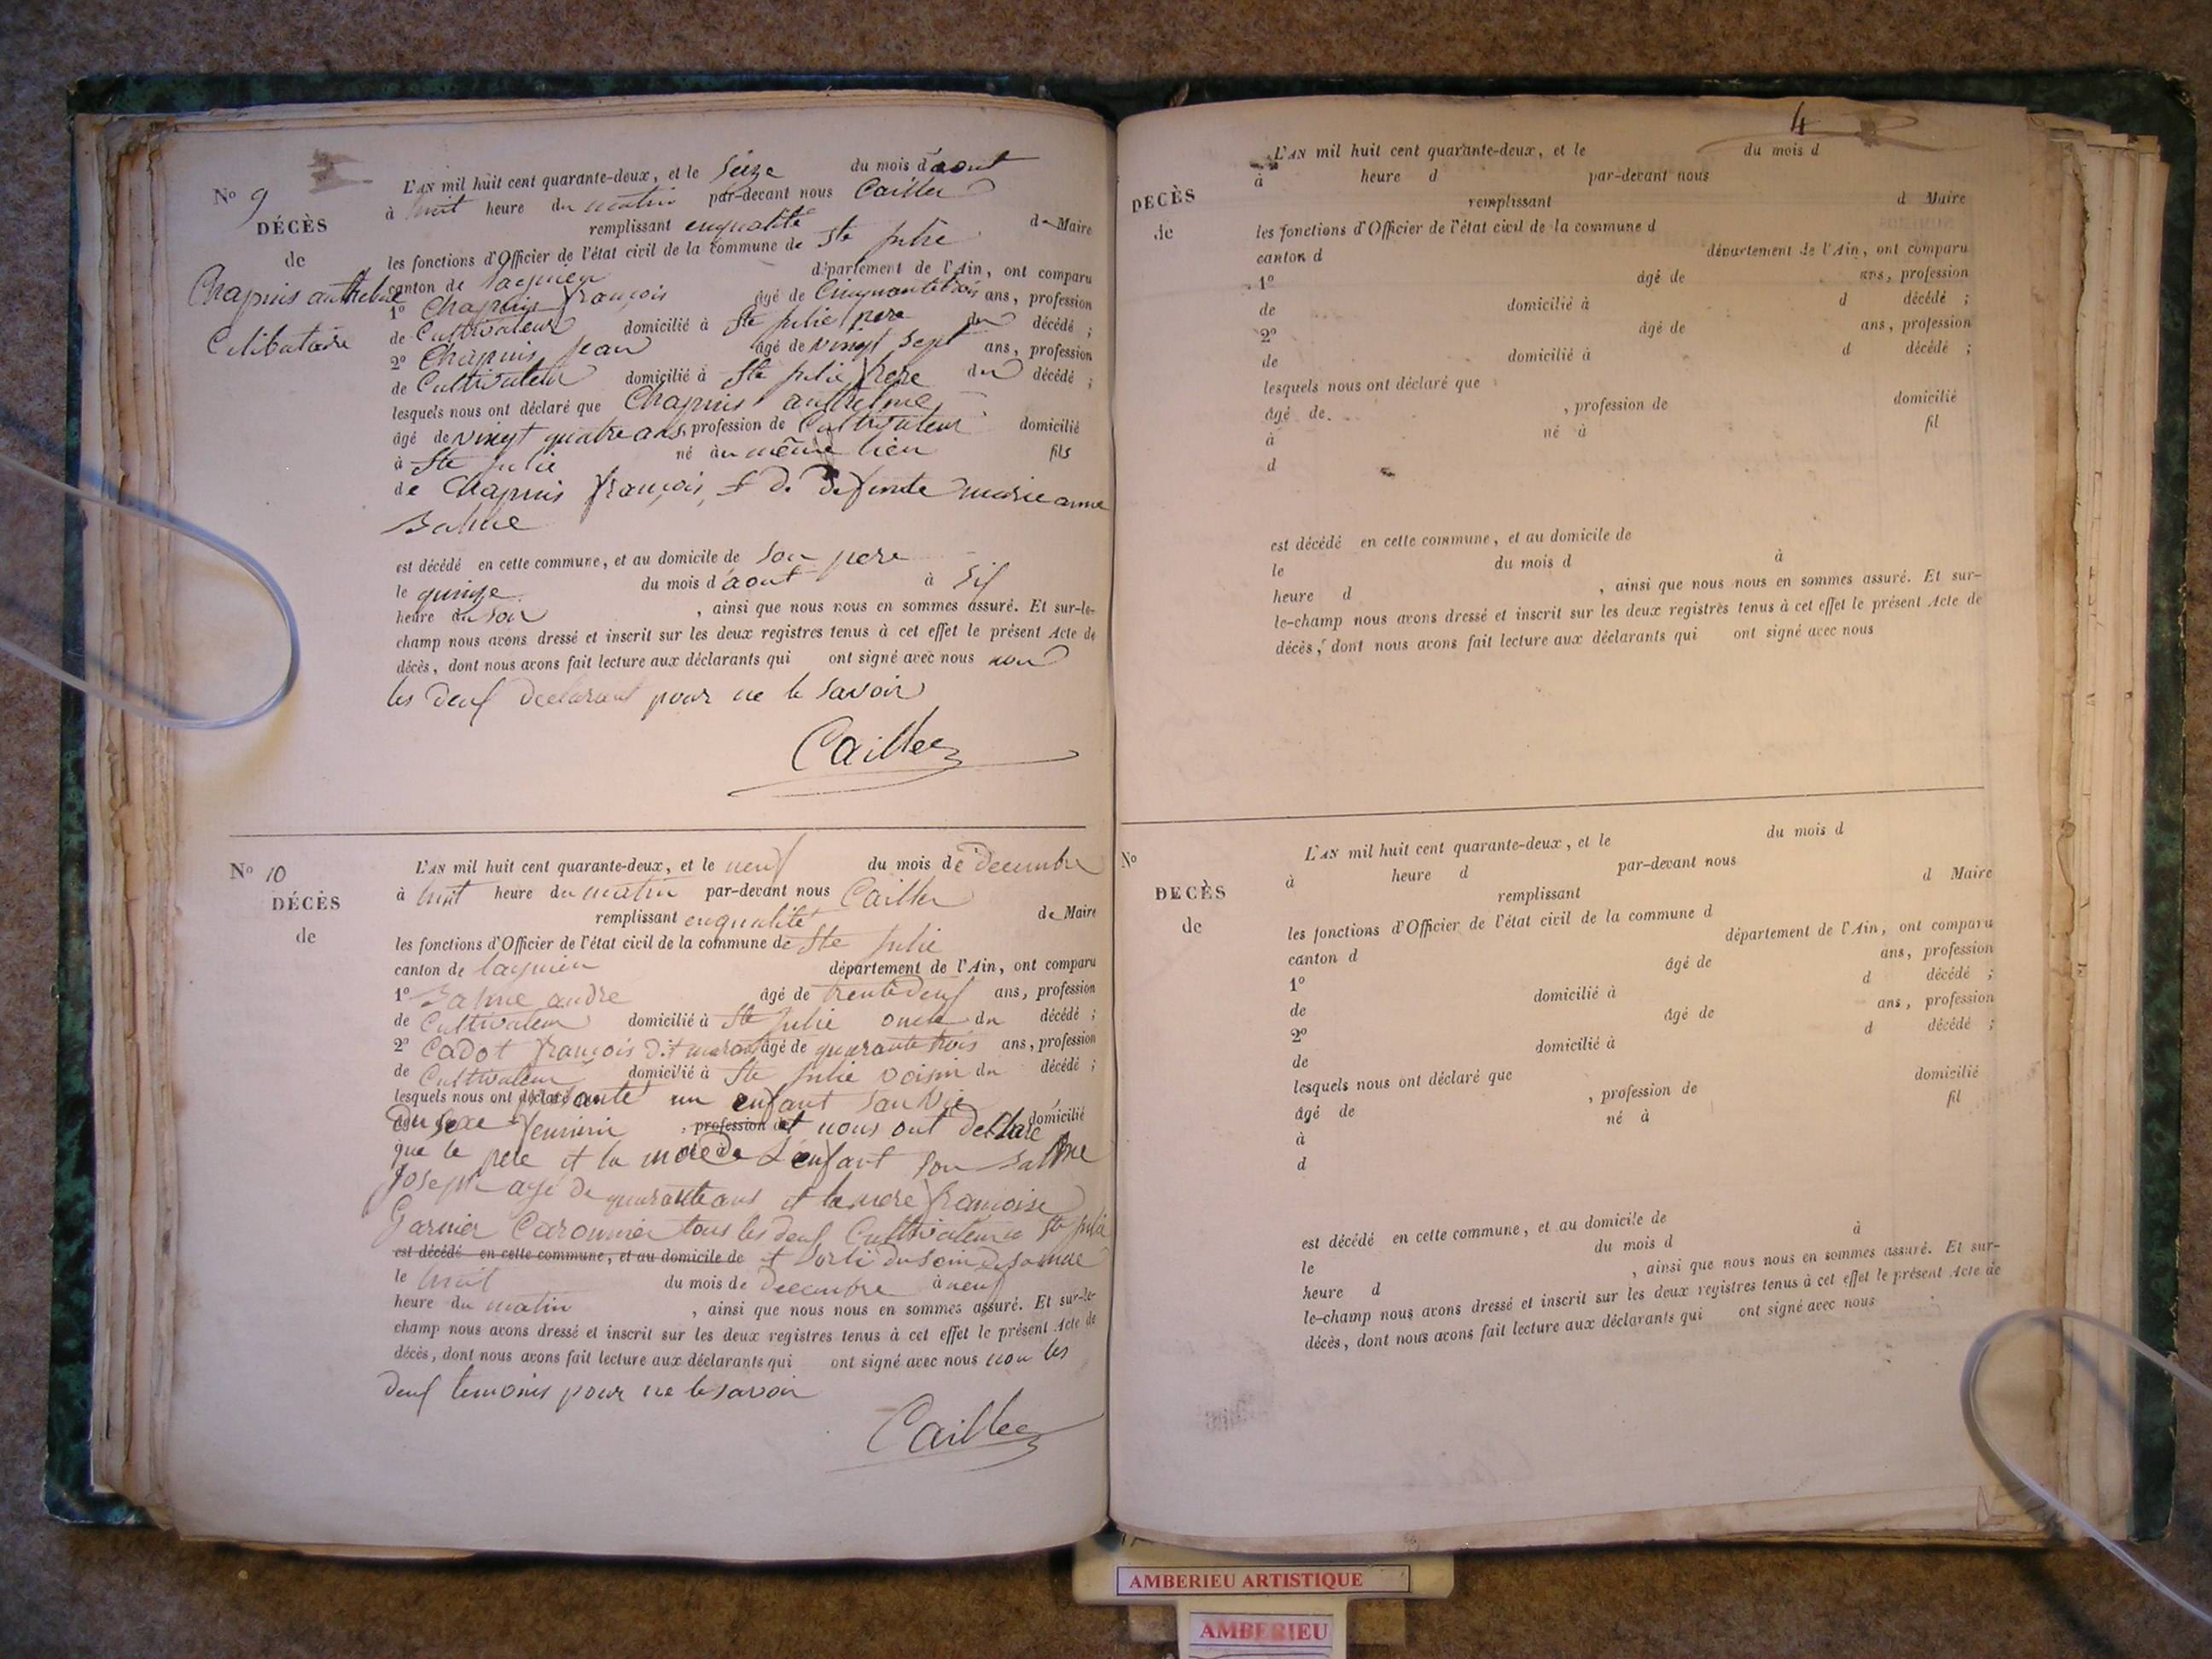 N° 9
DÉCÈS
de
Chapuis anthelme
Celibataire
L'AN mil huit cent quarante-deux, et le Seize du mois d'aout
à huit heure du matin par-devant nous Cailler
remplissant enqualité de Maire
les fonctions d'Officier de l'état civil de la commune de Ste Julie
canton de lagnieu département de l'Ain, ont comparu
1° Chapuis françois âgé de Cinquantetrois ans, profession
de Cultivateur domicilié à Ste Julie pere du décédé ;
2° Chapuis jean âgé de vingt sept ans, profession
de Cultivateur domicilié à Ste Julie frere du décédé ;
lesquels nous ont déclaré que Chapuis anthelme
âgé de vingt quatre ans, profession de Cultivateur domicilié
à Ste Julie né au même lieu fils
de Chapuis françois, et de defunte marie anne
Balme
est décédé en cette commune, et au domicile de Son pere
le quinze du mois d'aout à Six
heure du Soir , ainsi que nous nous en sommes assuré. Et sur-le-
champ nous avons dressé et inscrit sur les deux registres tenus à cet effet le présent Acte de
décès, dont nous avons fait lecture aux déclarants qui ont signé avec nous non
les deux declarant pour ne le Savoir
Cailler
N° 10
DÉCÈS
de
L'AN mil huit cent quarante-deux, et le neuf du mois de decembre
à huit heure du matin par-devant nous Cailler
remplissant enqualité de Maire
les fonctions d'Officier de l'état civil de la commune de Ste Julie
canton de lagnieu département de l'Ain, ont comparu
1° Balme andre âgé de trentedeux ans, profession
de Cultivateur domicilié à Ste Julie oncle du décédé ;
2° Cadot françois dit âgé de quarantetrois ans, profession
de Cultivateur domicilié à Ste Julie voisin du décédé ;
lesquels nous ont un enfant San Vie
Du Sexe feminin , profession et nous ont declaré domicilié
que le pere et la mere de L'enfant Son Balme
Joseph agé de quarante ans et la mere françoise
Garnier tous les deux Cultivateur a Ste Julie
est décédé en cette commune, et au domicile de et Sorti du Sein de Sa mere
le huit du mois de decembre à neuf
heure du matin , ainsi que nous nous en sommes assuré. Et sur-le-
champ nous avons dressé et inscrit sur les deux registres tenus à cet effet le présent Acte de
décès, dont nous avons fait lecture aux déclarants qui ont signé avec nous non les
deux temoins pour ne le Savoir
Cailler
4
DECÈS
de
L'AN mil huit cent quarante-deux, et le du mois d
à heure d par-devant nous
remplissant d Maire
les fonctions d'Officier de l'état civil de la commune d
canton d département de l'Ain, ont comparu
1° âgé de ans, profession
de domicilié à d décédé ;
2° âgé de ans, profession
de domicilié à d décédé ;
lesquels nous ont déclaré que
âgé de , profession de domicilié
à né à fil
d
est décédé en cette commune, et au domicile de
le du mois d à
heure d , ainsi que nous nous en sommes assuré. Et sur-
le-champ nous avons dressé et inscrit sur les deux registres tenus à cet effet le présent Acte de
décès, dont nous avons fait lecture aux déclarants qui ont signé avec nous
N°
DECÈS
de
L'AN mil huit cent quarante-deux, et le du mois d
à heure d par-devant nous
remplissant d Maire
les fonctions d'Officier de l'état civil de la commune d
canton d département de l'Ain, ont comparu
1° âgé de ans, profession
de domicilié à d décédé ;
2° âgé de ans, profession
de domicilié à d décédé ;
lesquels nous ont déclaré que
âgé de , profession de domicilié
à né à fil
d
est décédé en cette commune, et au domicile de
le du mois d à
heure d , ainsi que nous nous en sommes assuré. Et sur-
le-champ nous avons dressé et inscrit sur les deux registres tenus à cet effet le présent Acte de
décès, dont nous avons fait lecture aux déclarants qui ont signé avec nous
AMBERIEU ARTISTIQUE
AMBERIEU